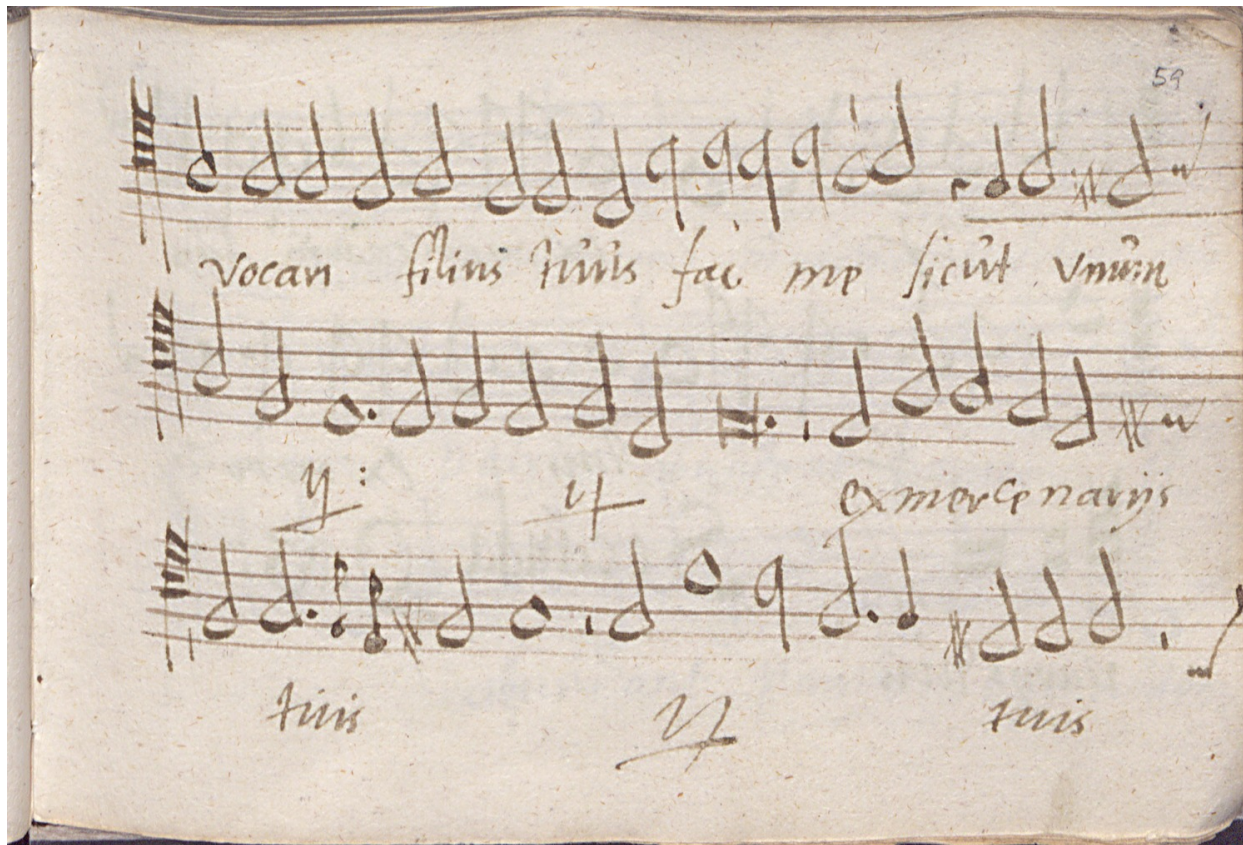 59
vocari filius tuus fac me sicut vnum
ij: ij ex mercenarijs
tuis ij tuis